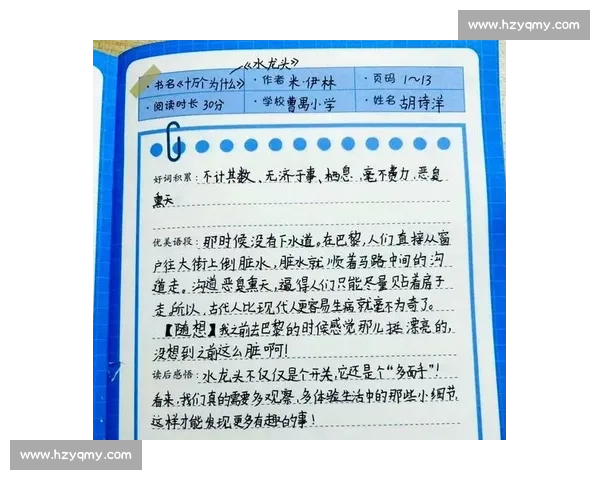 www.hzyqmy.com
《水龙头》
·书名《十万个为什么》 ·作者 米·伊林 ·页码 1~13
·阅读时长 30分 ·学校 曹禺小学 ·姓名 胡诗洋
好词积累：不计其数、无济于事、栖息、毫不费力、恶臭
熏天
优美语段：那时候没有下水道。在巴黎，人们直接从窗
户往大街上倒脏水，脏水就顺着马路中间的沟
道走。沟道恶臭熏天，逼得人们只能尽量贴着房子
走。所以，古代人比现代人更容易生病就毫不为奇了。
【随想】我之前去巴黎的时候感觉那儿挺漂亮的，
没想到之前这么脏啊！
读后感悟：水龙头不仅仅是个开关，它还是个“多面手”！
看来，我们真的需要多观察，多体验生活中的那些小细节，
这样才能发现更多有趣的事！
www.hzyqmy.com
www.hzyqmy.com